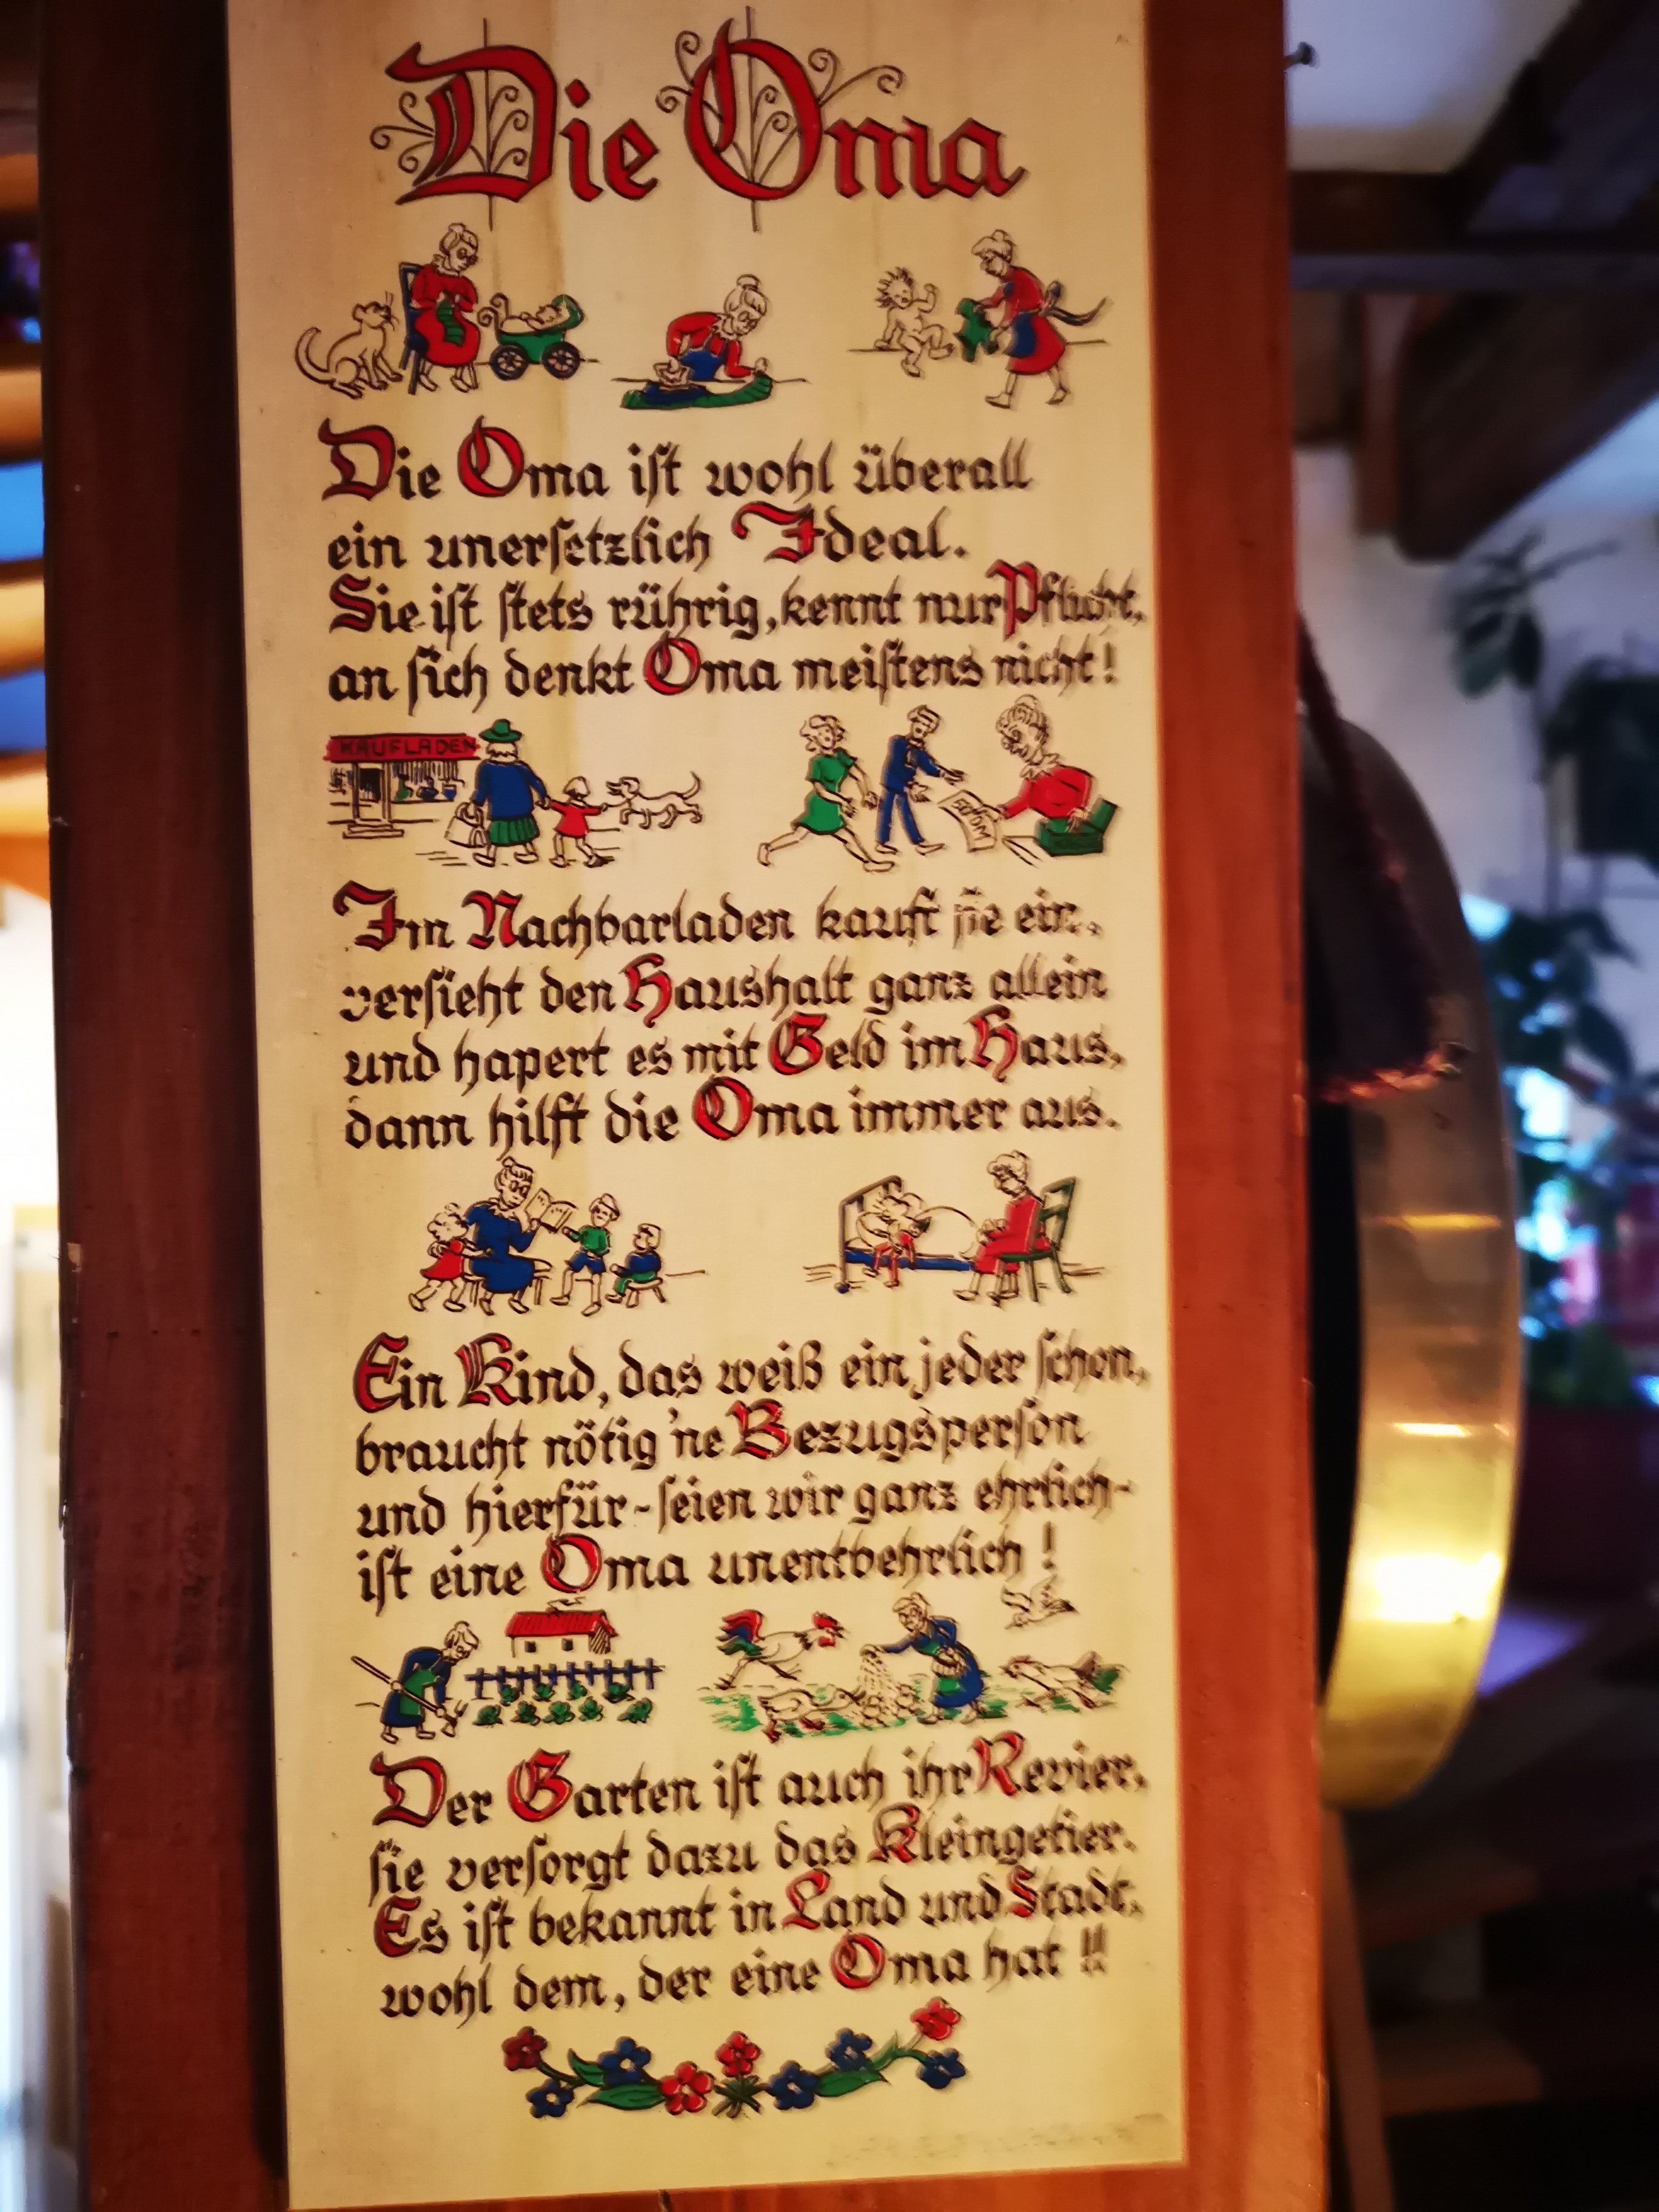 Die Oma
Die Oma ist wohl überall
ein unersetzlich Ideal.
Sie ist stets rührig, kennt nur Pflicht,
an sich denkt Oma meistens nicht!
KAUFLADEN
50 DM
Im Nachbarladen kauft sie ein,
versieht den Haushalt ganz allein
und hapert es mit Geld im Haus,
dann hilft die Oma immer aus.
Ein Kind, das weiß ein jeder schon,
braucht nötig 'ne Bezugsperson
und hierfür - seien wir ganz ehrlich -
ist eine Oma unentbehrlich!
Der Garten ist auch ihr Revier,
sie versorgt dazu das Kleingetier.
Es ist bekannt in Land und Stadt,
wohl dem, der eine Oma hat!!